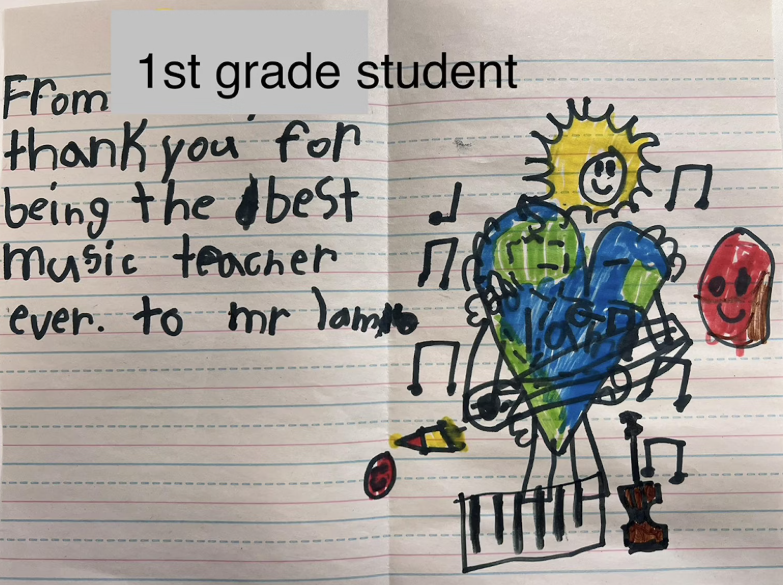 1st grade student
From
thank you for
being the best
music teacher
ever. to mr lamb